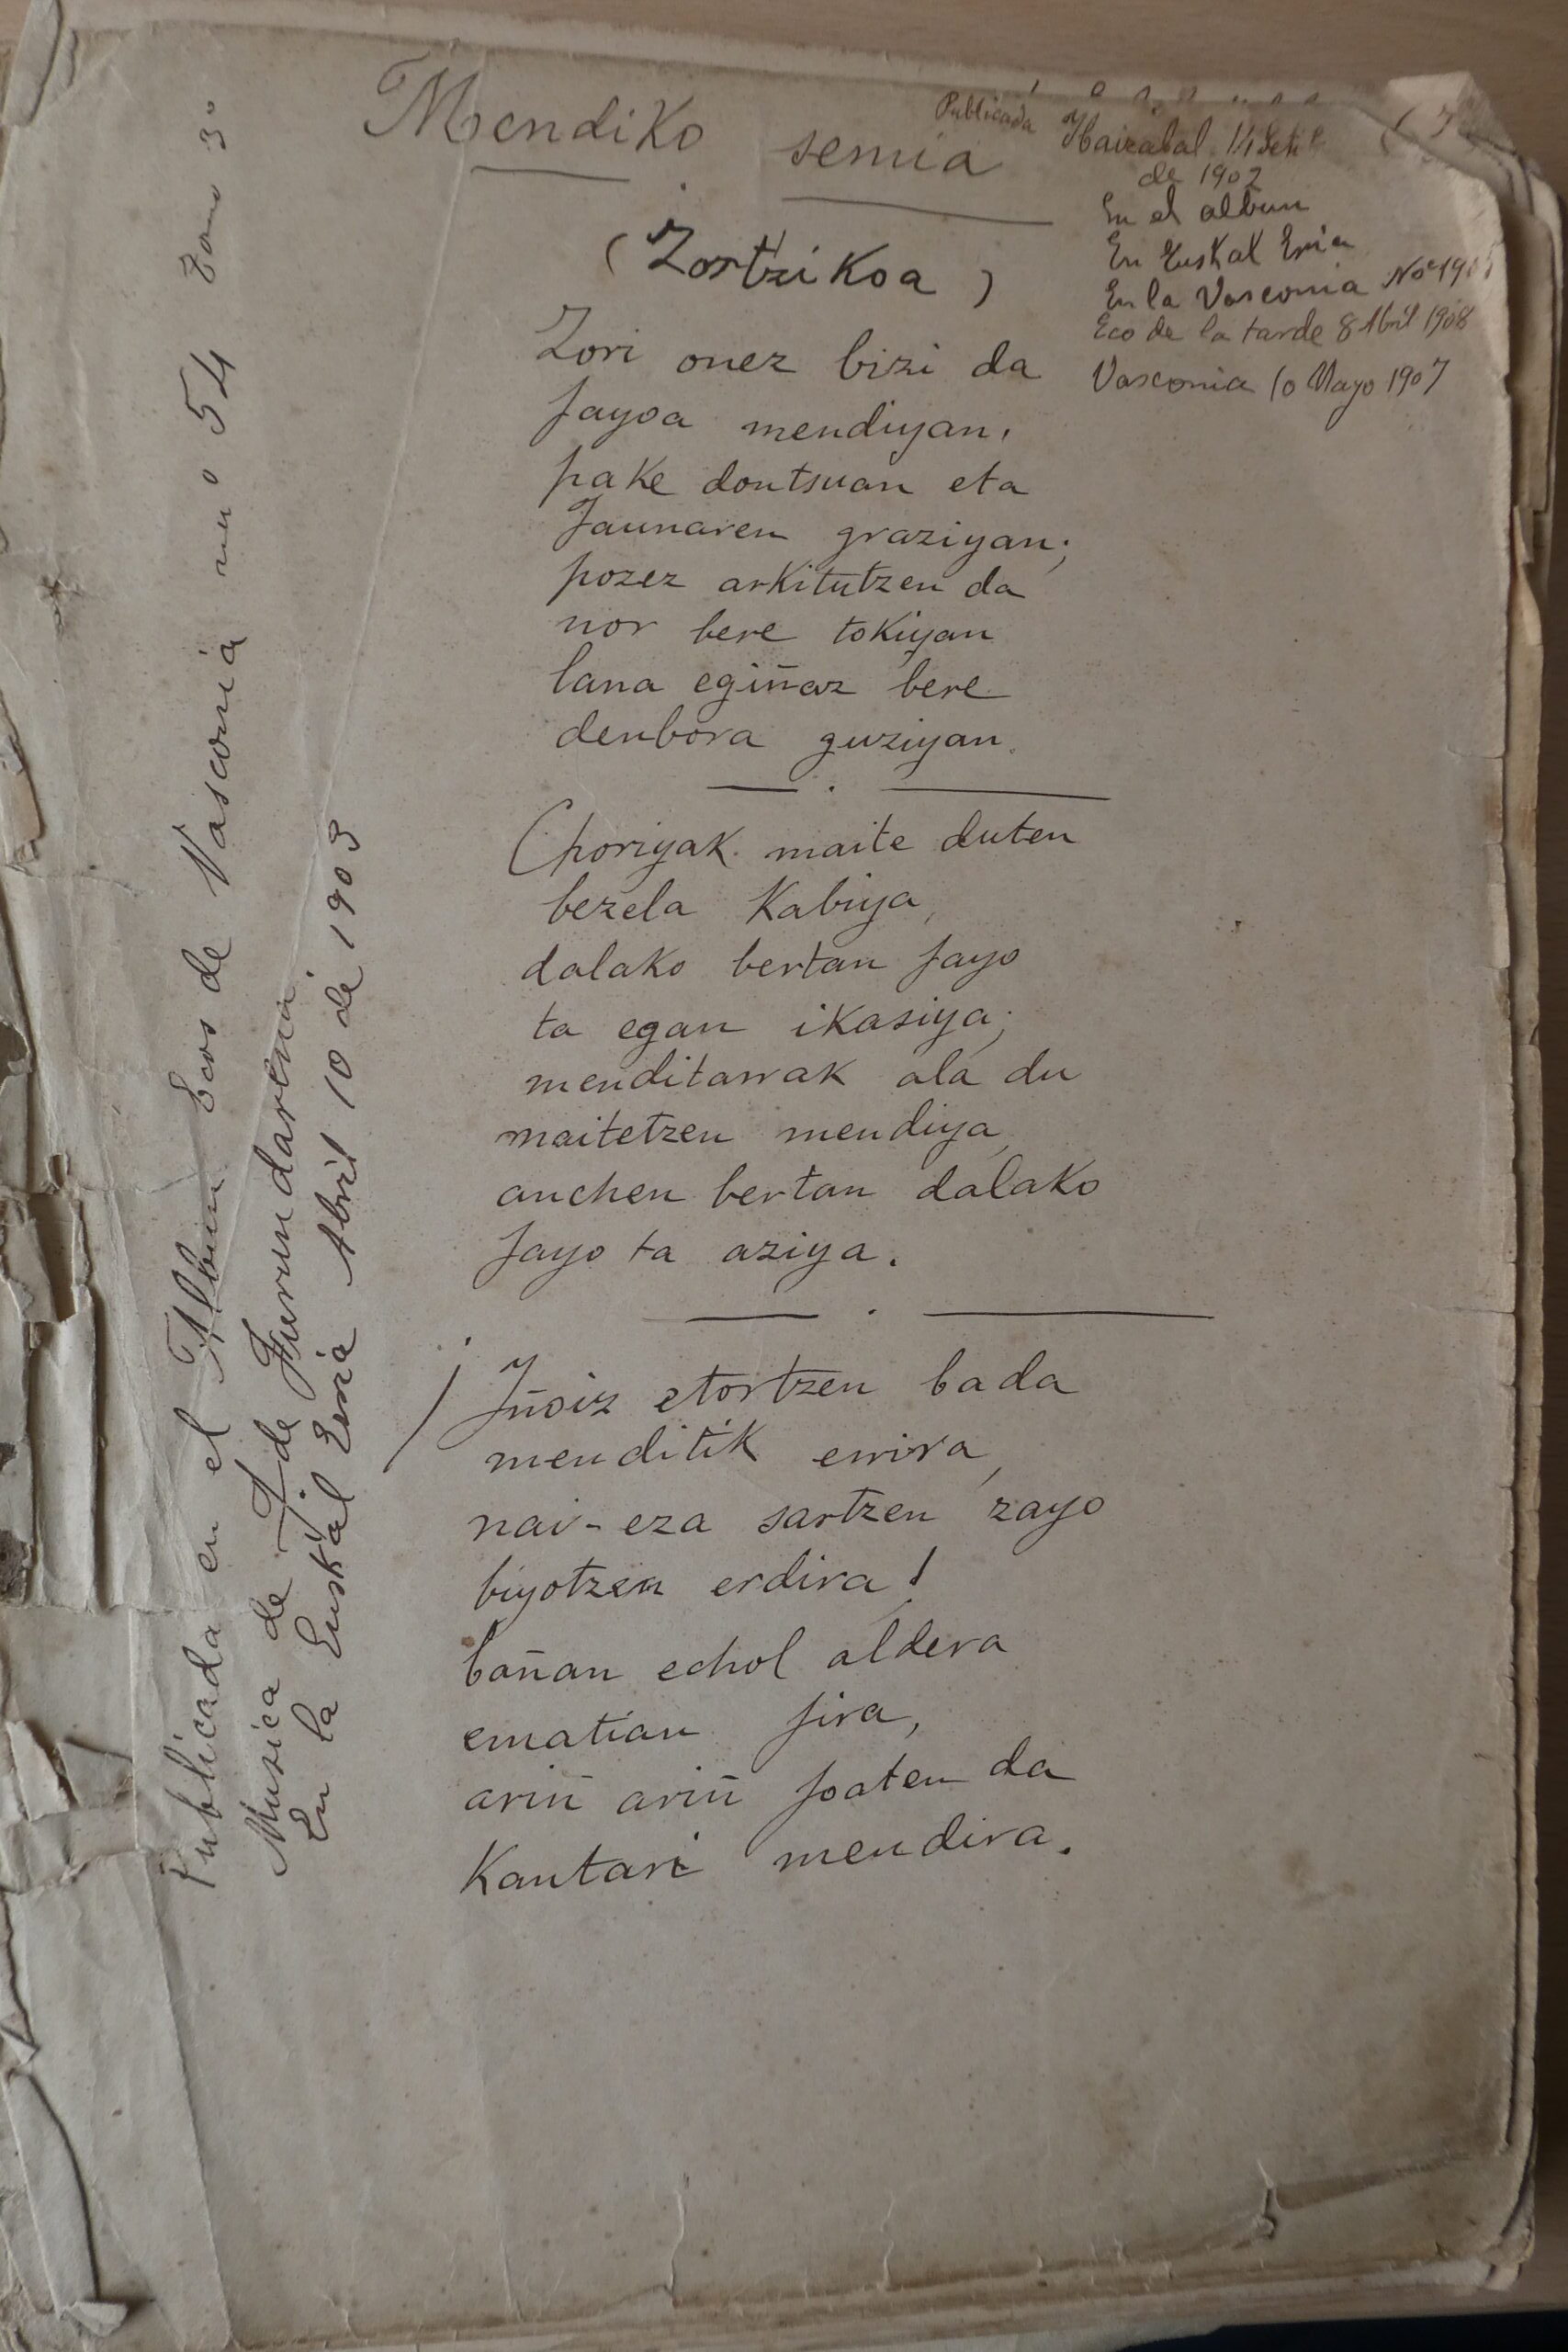 Mendiko semia
(Zortzikoa)
Publicada Ibaizabal 14 Set.
de 1902
En el album
En Euskal Erria
En la Vasconia
Eco de la tarde 8 Abril 1908
Vasconia 10 Mayo 1907
Zori onez bizi da
jayoa mendiyan,
pake dontsuan eta
Jaunaren graziyan;
pozez arkitutzen da
nor bere tokiyan
lana egiñaz bere
denbora guziyan.
Choriyak maite duten
bezela kabiya,
dalako bertan jayo
ta egan ikasiya;
menditarrak ala du
maitetzen mendiya,
anchen bertan dalako
jayo ta aziya.
¡Iñoiz etortzen bada
menditik errira,
nai-eza sartzen zayo
biyotzen erdira!
bañan echol aldera
ematian jira,
ariñ ariñ joaten da
kantari mendira.
Publicada en el Album Ecos de Vasconia nuº 54 Tomo 3º
Musica de J. de Furundarena
En la Euskal Erria Abril 10 de 1903